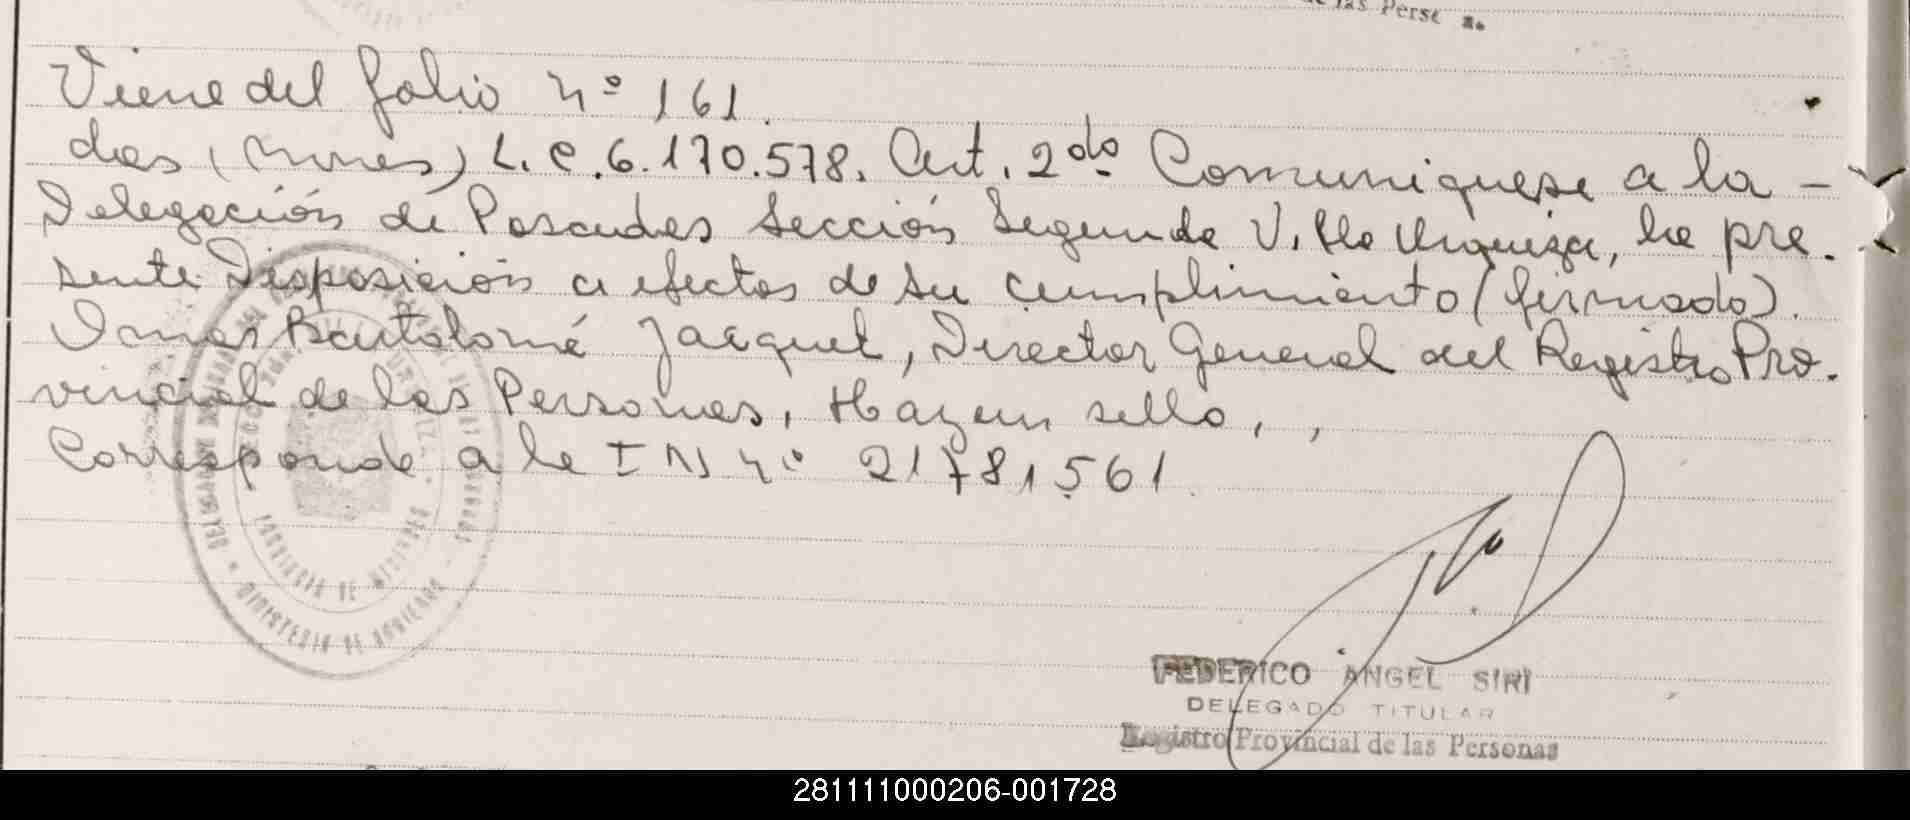 de las Perso
Viene del folio nº 161.
das (Mires) L.C.6.170.578. Art. 2do Comuniquese a la -
Delegación de Posadas Sección Segunda Villa Urquiza, la pre.
sente Disposición a efectos de su cumplimiento (firmado).
Omar Bartolomé Jacquet, Director General del Registro Pro.
vincial de las Personas, Hay un sello, ,
Corresponde a la IN nº 21781561.
PROVINCIA DE MISIONES
MINISTERIO DE GOBIERNO
FEDERICO ANGEL SIRI
DELEGADO TITULAR
Registro Provincial de las Personas
281111000206-001728